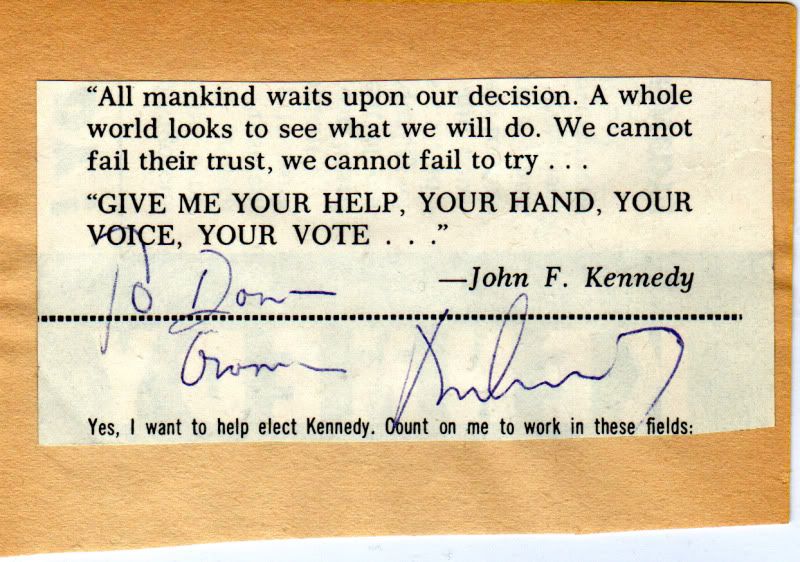 “All mankind waits upon our decision. A whole
world looks to see what we will do. We cannot
fail their trust, we cannot fail to try . . .
“GIVE ME YOUR HELP, YOUR HAND, YOUR
VOICE, YOUR VOTE . . .”
—John F. Kennedy
To Don
Yes, I want to help elect Kennedy. Count on me to work in these fields: